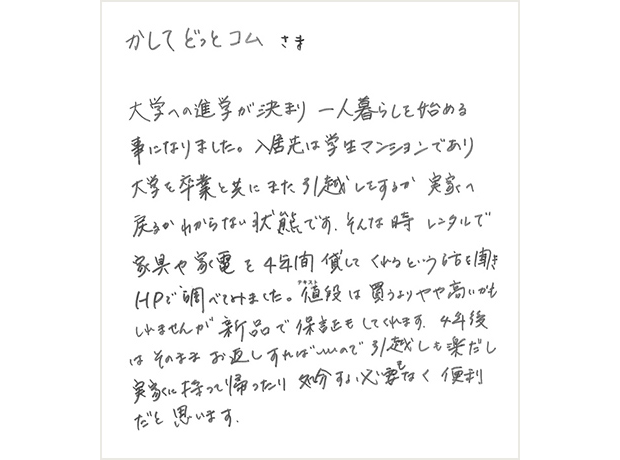 かしてどっとコム さま
大学への進学が決まり 一人暮らしを始める
事になりました。入居先は学生マンションであり
大学を卒業と共にまた引越しをするか 実家へ
戻るかわからない状態です。そんな時 レンタルで
家具や家電を4年間貸してくれるという話を聞き
HPで調べてみました。値段は買うよりやや高いかも
テキスト
しれませんが 新品で保証もしてくれます。4年後
はそのままお返しすればいいので引越しも楽だし
実家に持って帰ったり 処分する必要もなく 便利
だと思います。